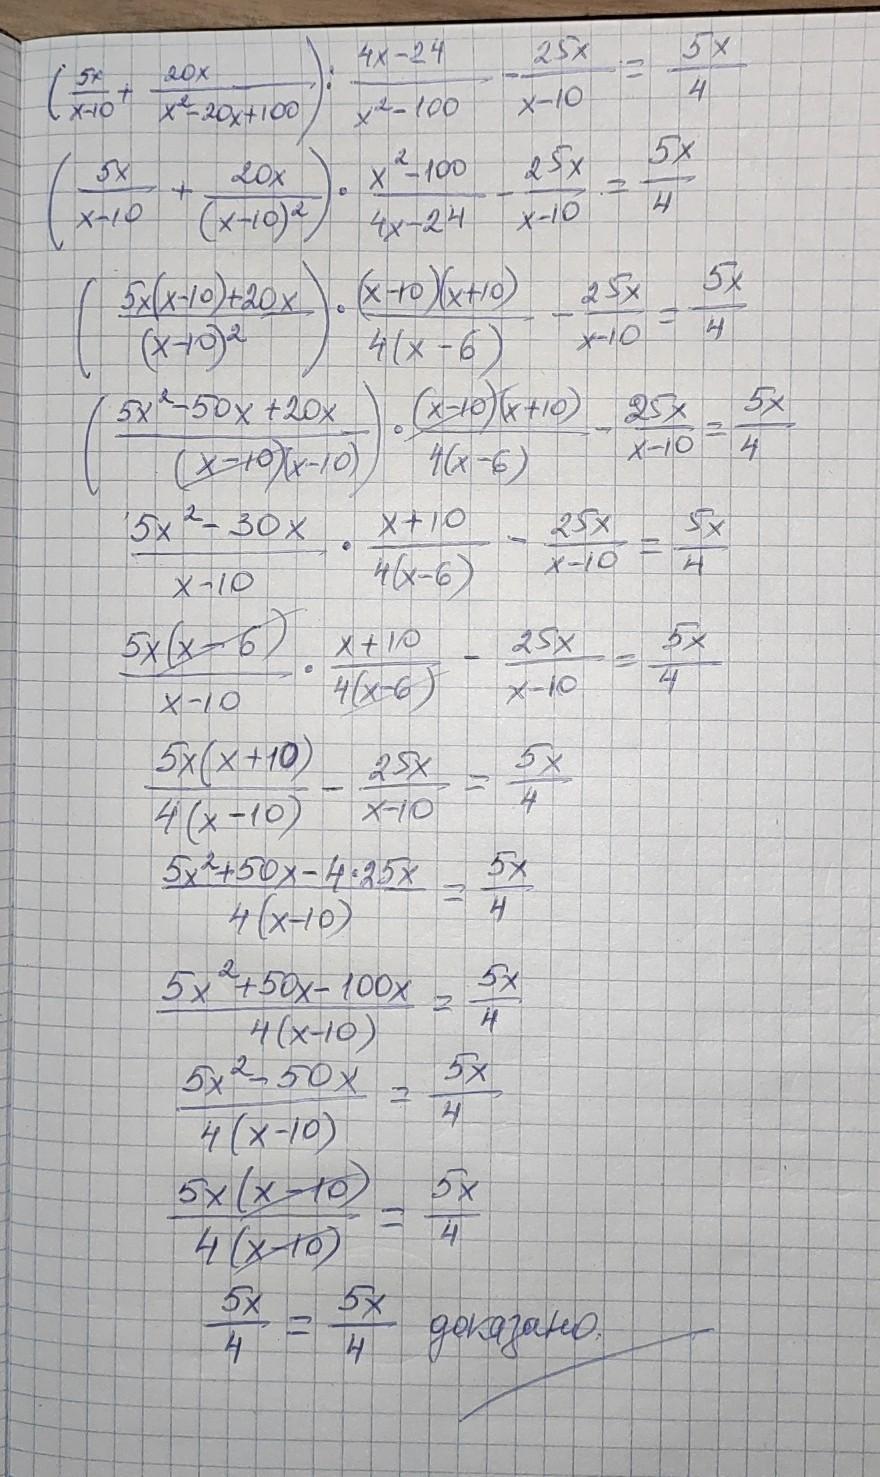 (5x/(x-10) + 20x/(x²-20x+100)) : (4x-24)/(x²-100) - 25x/(x-10) = 5x/4
(5x/(x-10) + 20x/(x-10)²) · (x²-100)/(4x-24) - 25x/(x-10) = 5x/4
((5x(x-10)+20x)/(x-10)²) · (x-10)(x+10)/(4(x-6)) - 25x/(x-10) = 5x/4
((5x²-50x+20x)/((x-10)(x-10))) · (x-10)(x+10)/(4(x-6)) - 25x/(x-10) = 5x/4
(5x²-30x)/(x-10) · (x+10)/(4(x-6)) - 25x/(x-10) = 5x/4
5x(x-6)/(x-10) · (x+10)/(4(x-6)) - 25x/(x-10) = 5x/4
5x(x+10)/(4(x-10)) - 25x/(x-10) = 5x/4
(5x²+50x-4·25x)/(4(x-10)) = 5x/4
(5x²+50x-100x)/(4(x-10)) = 5x/4
(5x²-50x)/(4(x-10)) = 5x/4
5x(x-10)/(4(x-10)) = 5x/4
5x/4 = 5x/4 доказано.